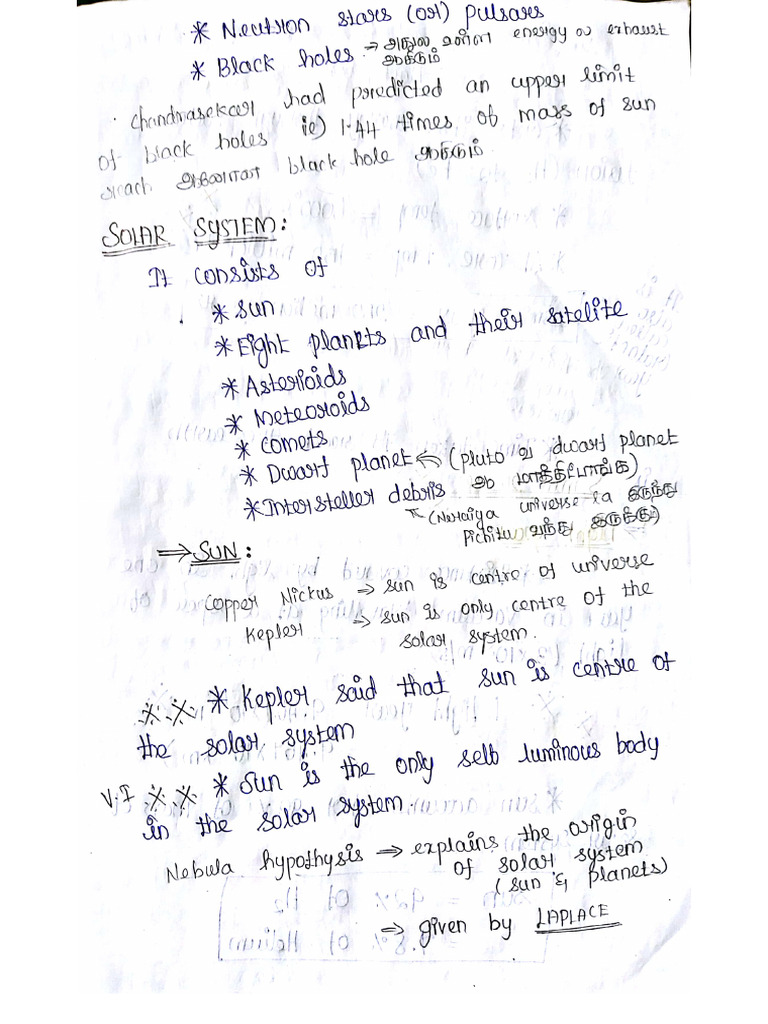 * Neutron stars (or) Pulsars
* Black holes → அதுல உள்ள energy ல exhaust
ஆகிடும்
· Chandrasekar had predicted an upper limit
of black holes ie) 1.44 times of mass of sun
reach ஆனா black hole ஆகிடும்
SOLAR SYSTEM:
It consists of
* Sun
* Eight planets and their satelite
* Asteroids
* Meteoroids
* Comets
* Dwarf planet ← (pluto வ dwarf planet
ஆ மாத்திட்டாங்க)
* Intersteller debris
(Neraiya universe la இருந்து
Pichitu வந்து இருக்கு)
⇒ SUN:
Copper Nickus → Sun is centre of universe
Kepler → Sun is only centre of the
solar system.
* Kepler said that sun is centre of
the solar system
V.I * Sun is the only self luminous body
in the solar system.
Nebula hypothysis ⇒ explains the origin
of solar system
(sun & planets)
⇒ given by LAPLACE